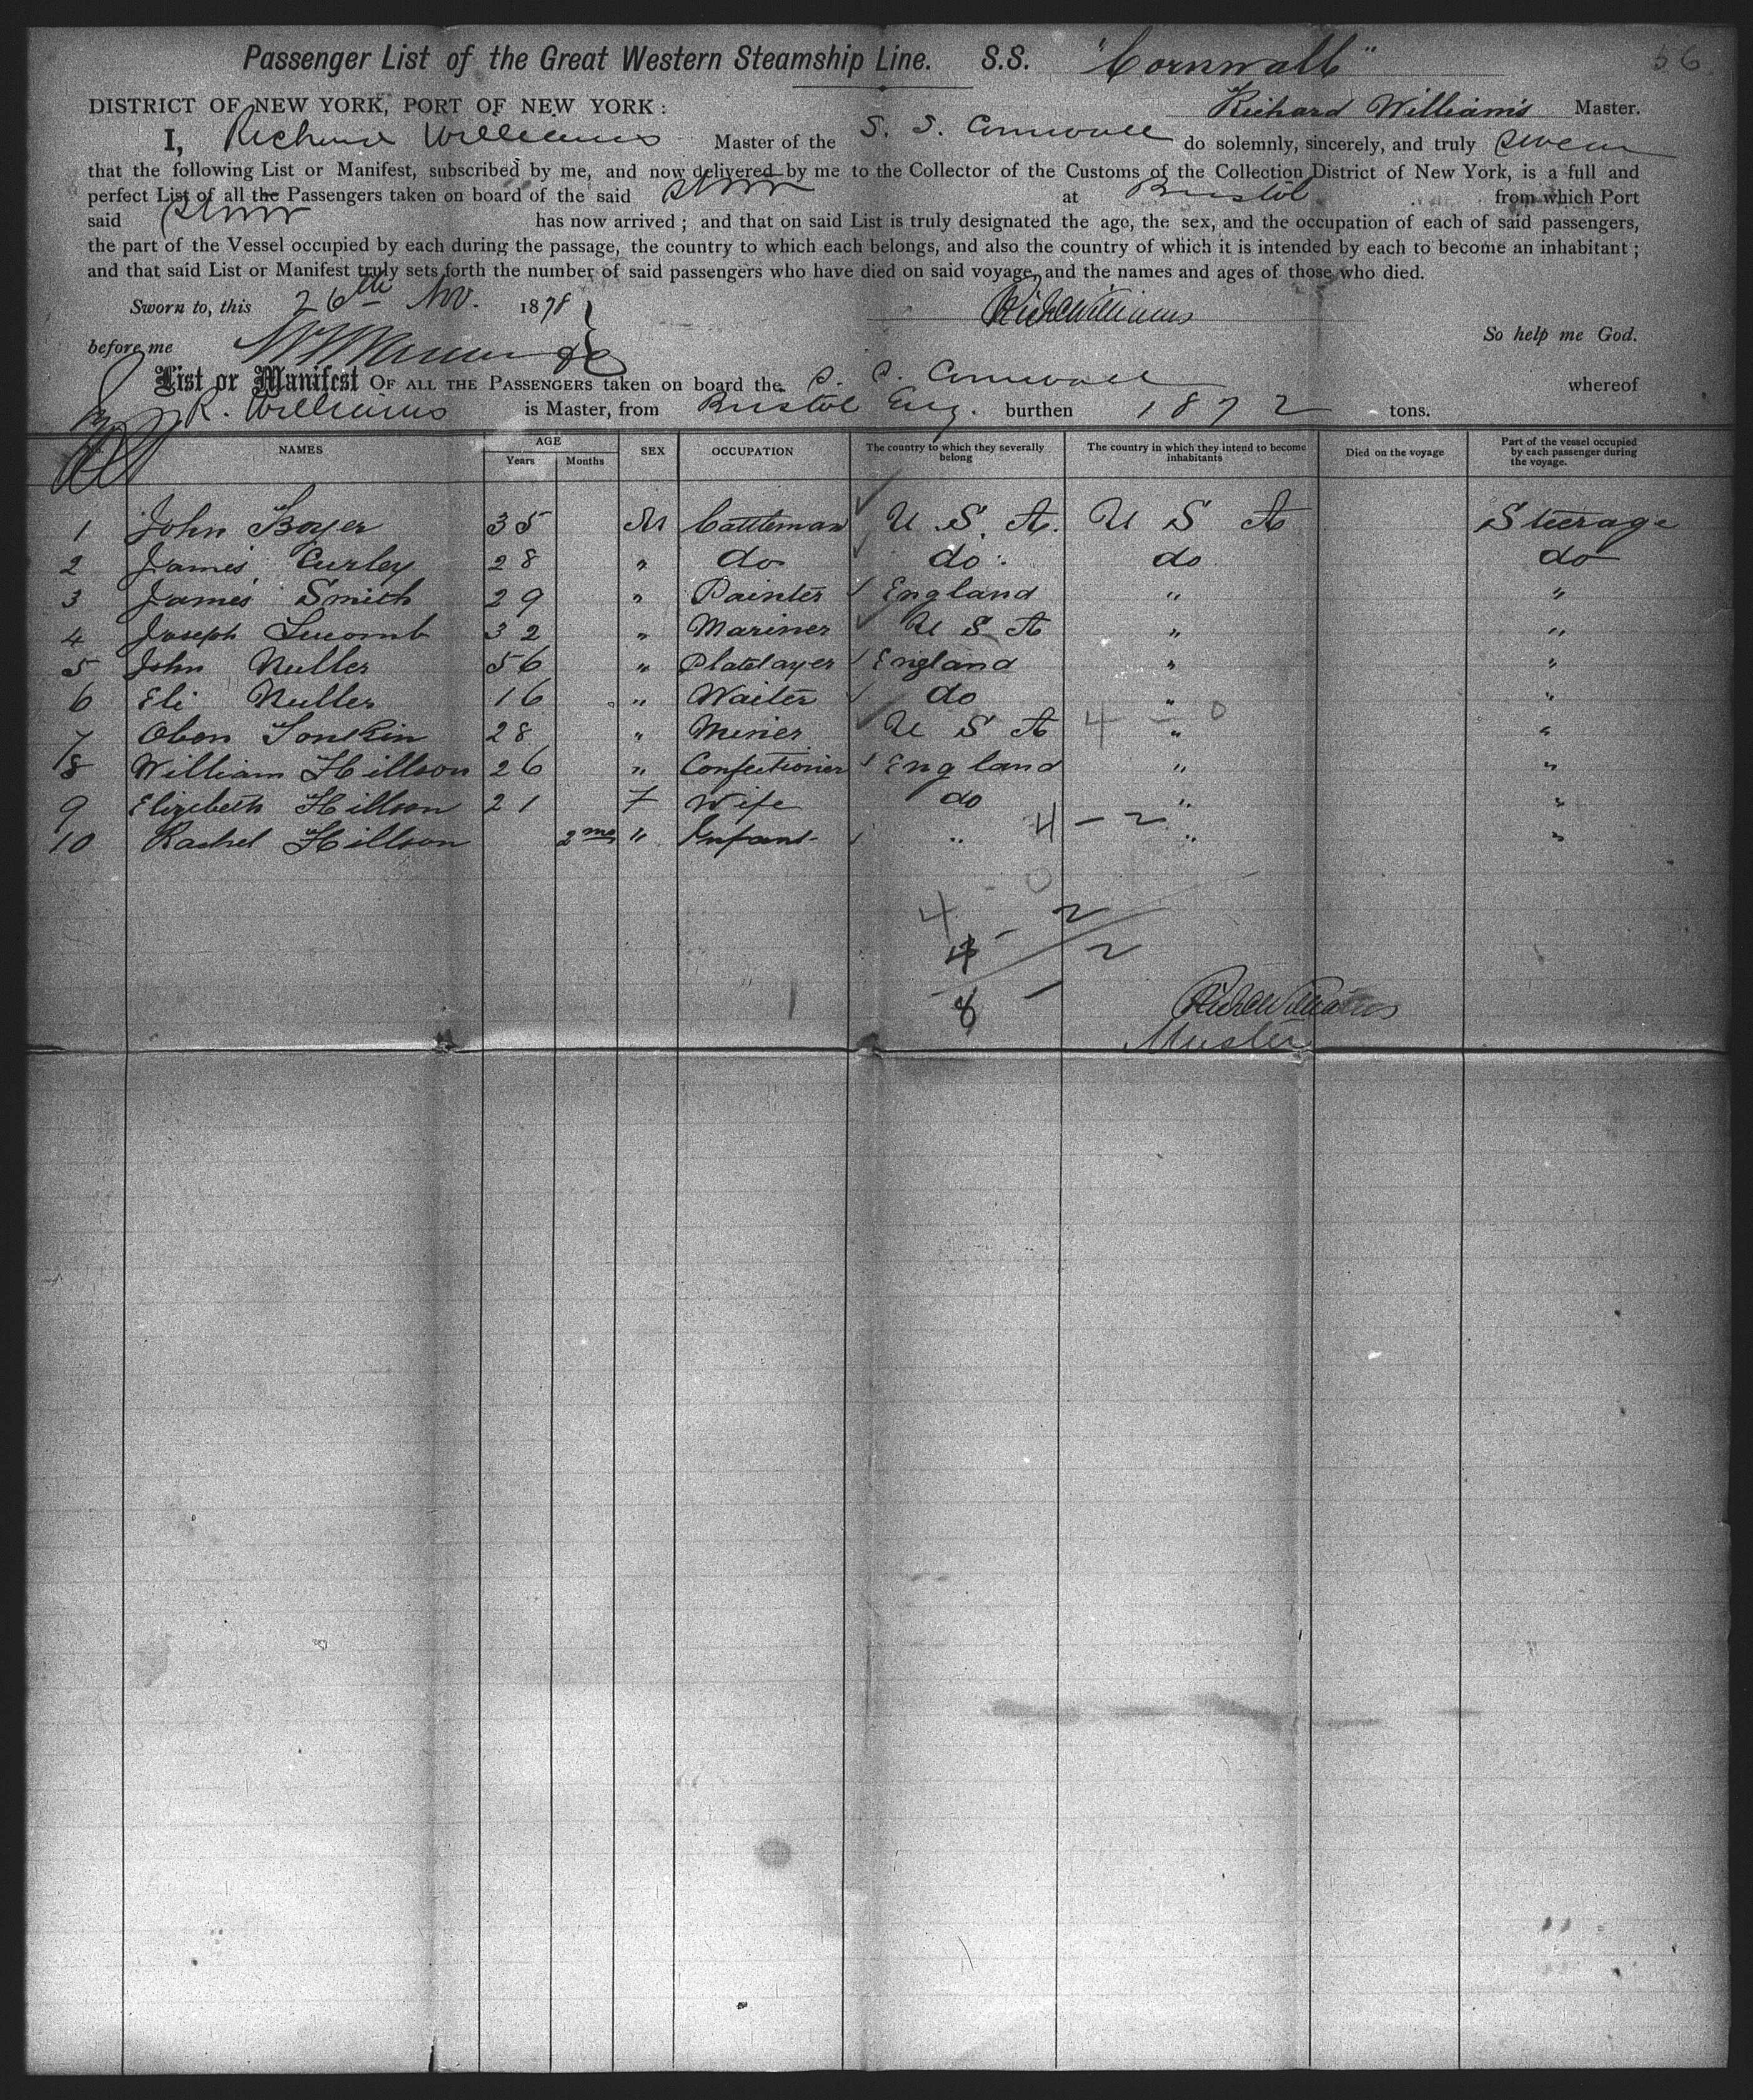 Passenger List of the Great Western Steamship Line. S.S. "Cornwall" 56
DISTRICT OF NEW YORK, PORT OF NEW YORK: Richard Williams Master.
I, Richard Williams Master of the S. S. Cornwall do solemnly, sincerely, and truly swear
that the following List or Manifest, subscribed by me, and now delivered by me to the Collector of the Customs of the Collection District of New York, is a full and
perfect List of all the Passengers taken on board of the said Strmr at Bristol from which Port
said Strmr has now arrived; and that on said List is truly designated the age, the sex, and the occupation of each of said passengers,
the part of the Vessel occupied by each during the passage, the country to which each belongs, and also the country of which it is intended by each to become an inhabitant;
and that said List or Manifest truly sets forth the number of said passengers who have died on said voyage, and the names and ages of those who died.
Sworn to, this 26th Nov. 1878 Richd Williams
before me So help me God.
List or Manifest OF ALL THE PASSENGERS taken on board the S. S. Cornwall whereof
R. Williams is Master, from Bristol Eng. burthen 1872 tons.
NAMES AGE Years Months SEX OCCUPATION The country to which they severally belong The country in which they intend to become inhabitants Died on the voyage Part of the vessel occupied by each passenger during the voyage.
1 John Boyer 35 M Cattleman U S A. U S A Steerage
2 James Curley 28 " do do do do
3 James Smith 29 " Painter England " "
4 Joseph Lucomb 32 " Mariner U S A " "
5 John Nuller 56 " Platelayer England " "
6 Eli Nuller 16 " Waiter do " "
7 Oben Tonskin 28 " Miner U S A " "
4 - 0
8 William Hillson 26 " Confectioner England " "
9 Elizebeth Hillson 21 F Wife do " "
4 - 2
10 Rachel Hillson 2 mo " Infant " " "
4 - 0
4 - 2
8 - 2
Richd Williams
Master